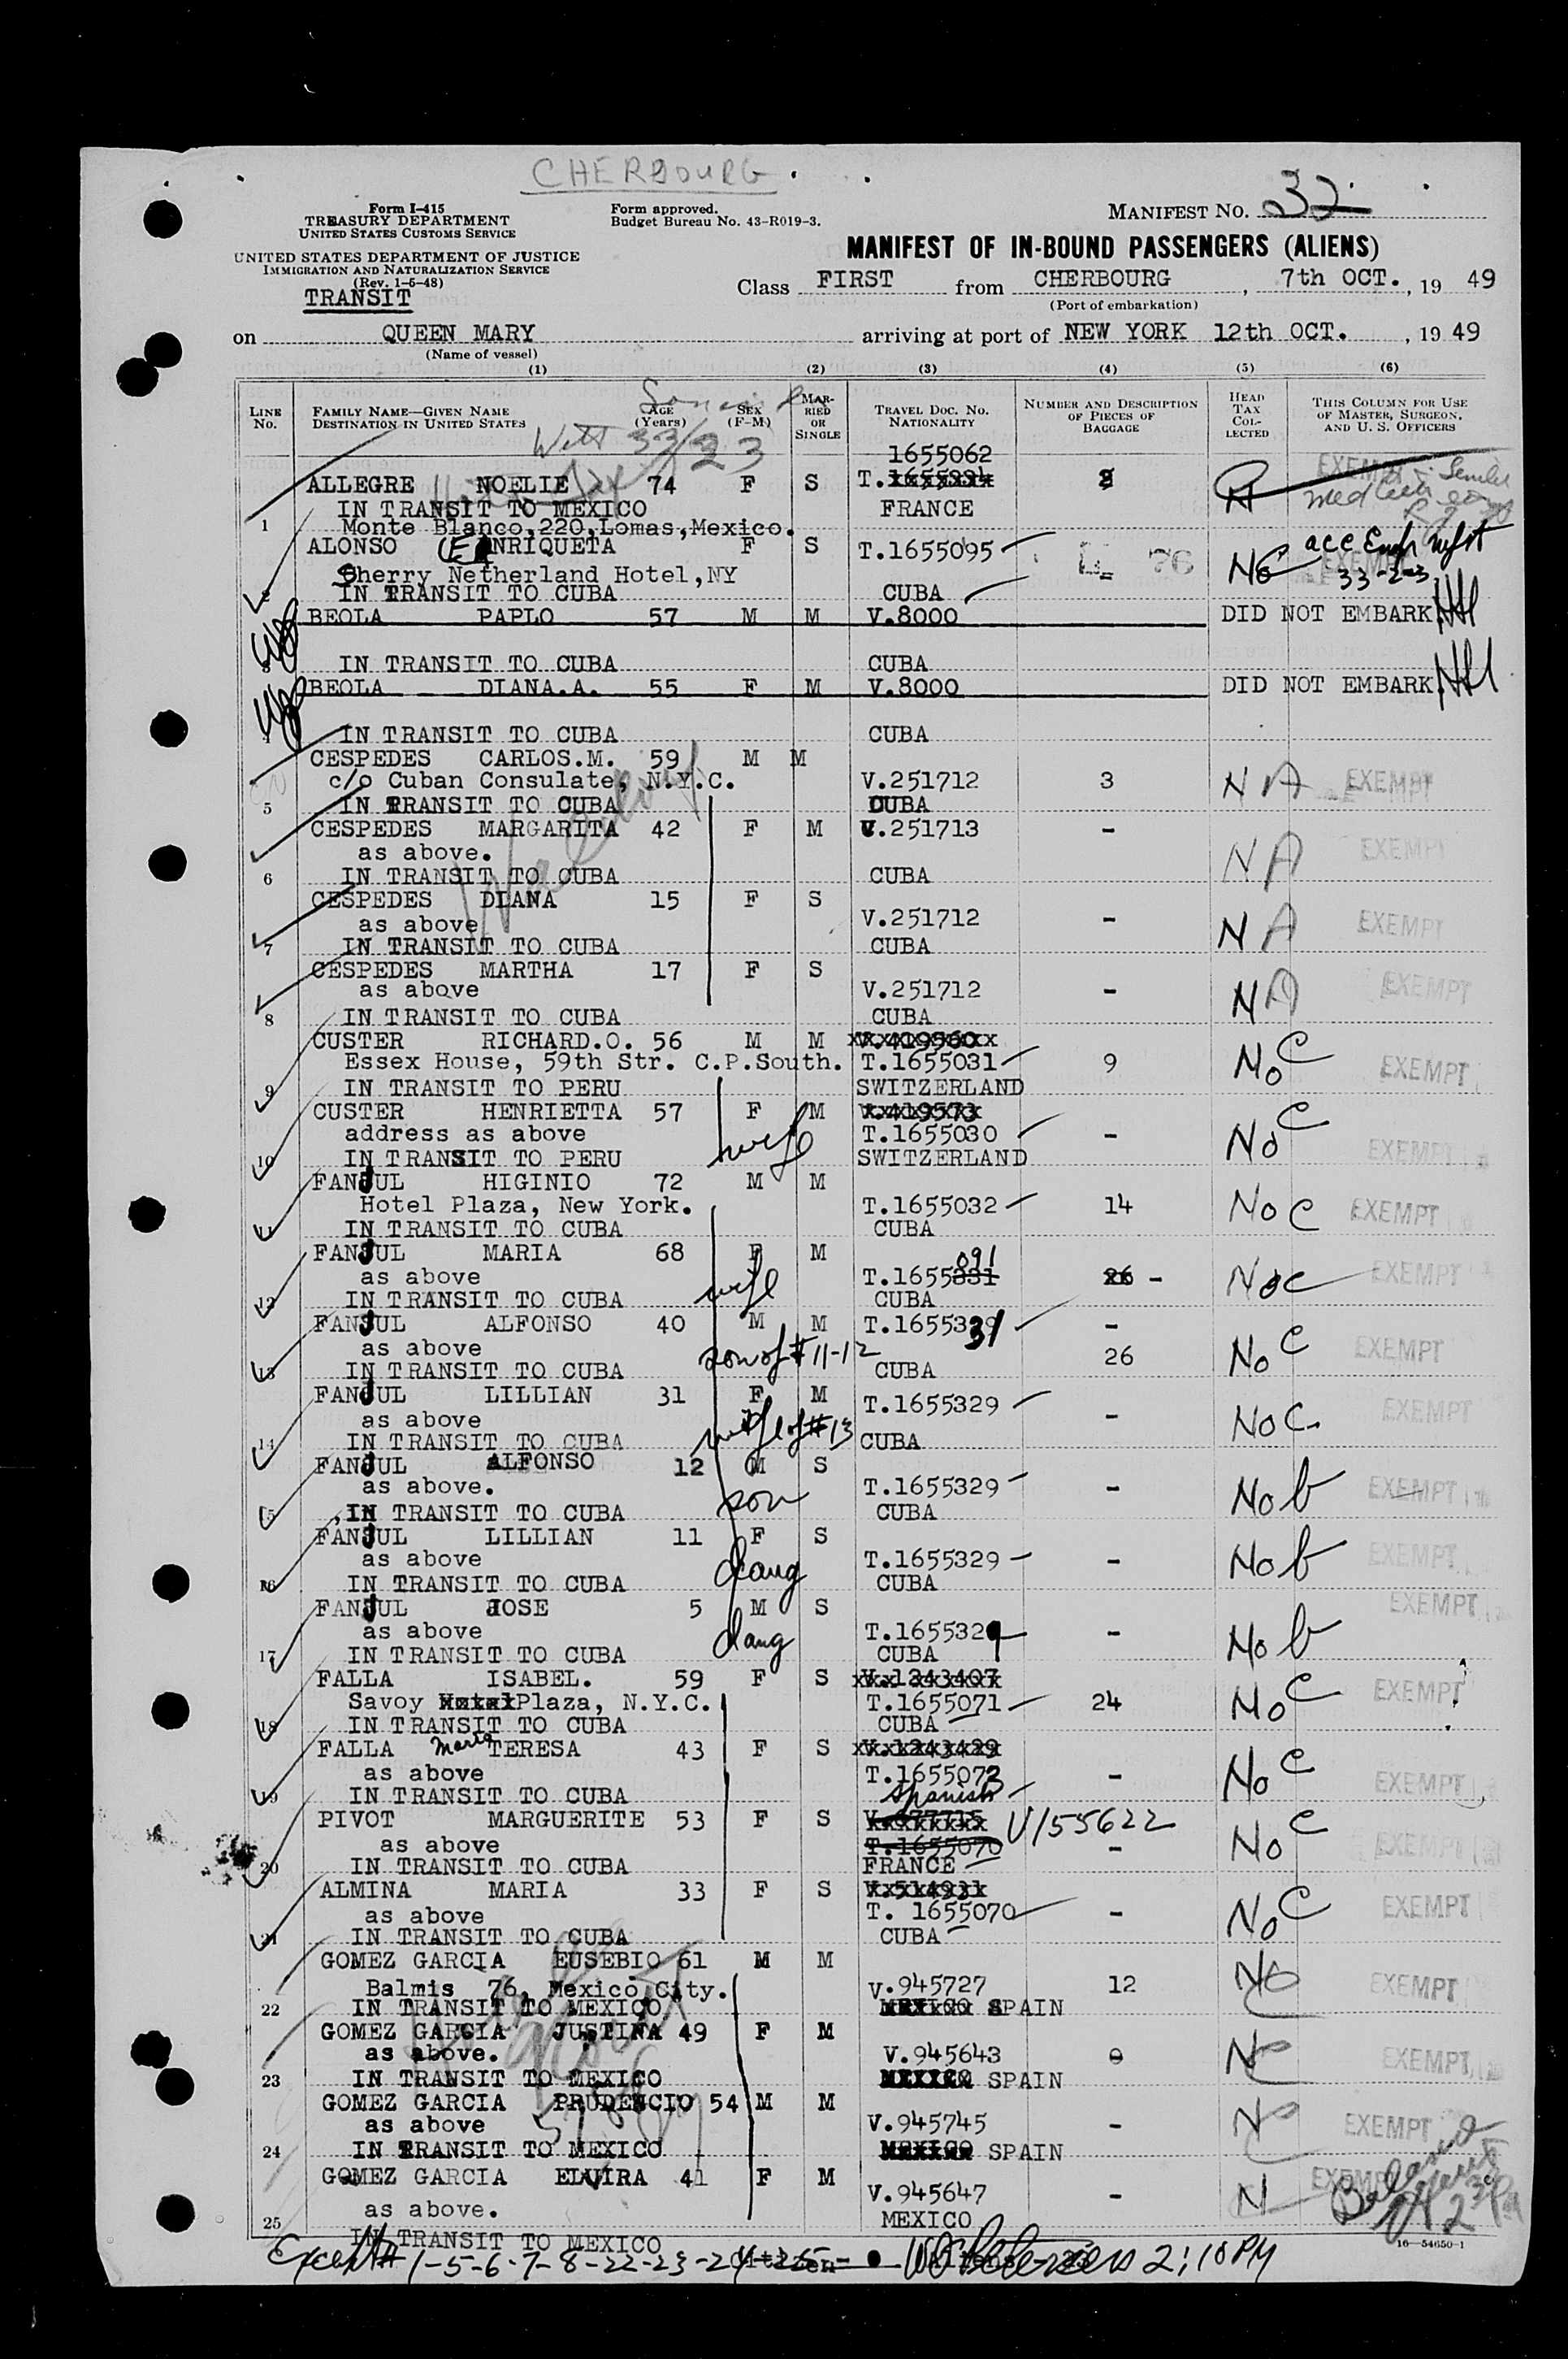 CHERBOURG
Form I-415
TREASURY DEPARTMENT
UNITED STATES CUSTOMS SERVICE
Form approved.
Budget Bureau No. 43-R019-3.
MANIFEST NO. 32
UNITED STATES DEPARTMENT OF JUSTICE
IMMIGRATION AND NATURALIZATION SERVICE
(Rev. 1-6-48)
TRANSIT
MANIFEST OF IN-BOUND PASSENGERS (ALIENS)
Class FIRST from CHERBOURG, 7th OCT., 19 49
(Port of embarkation)
on QUEEN MARY arriving at port of NEW YORK 12th OCT., 19 49
(Name of vessel)
(1) (2) (3) (4) (5) (6)
LINE No. FAMILY NAME—GIVEN NAME DESTINATION IN UNITED STATES AGE (Years) SEX (F-M) MARRIED OR SINGLE TRAVEL DOC. NO. NATIONALITY NUMBER AND DESCRIPTION OF PIECES OF BAGGAGE HEAD TAX COLLECTED THIS COLUMN FOR USE OF MASTER, SURGEON, AND U. S. OFFICERS
1655062
ALLEGRE NOELIE 74 F S T.
IN TRANSIT TO MEXICO FRANCE
1 Monte Blanco,220,Lomas,Mexico.
ALONSO ENRIQUETA F S T.1655095 NC acc
Sherry Netherland Hotel,NY 33-2-3
2 IN TRANSIT TO CUBA CUBA
BEOLA PAPLO 57 M M V.8000 DID NOT EMBARK
3 IN TRANSIT TO CUBA CUBA
BEOLA DIANA.A. 55 F M V.8000 DID NOT EMBARK
4 IN TRANSIT TO CUBA CUBA
CESPEDES CARLOS.M. 59 M M
c/o Cuban Consulate, N.Y.C. V.251712 3 NA EXEMPT
5 IN TRANSIT TO CUBA CUBA
CESPEDES MARGARITA 42 F M V.251713 -
as above. NA EXEMPT
6 IN TRANSIT TO CUBA CUBA
CESPEDES DIANA 15 F S
as above V.251712 - NA EXEMPT
7 IN TRANSIT TO CUBA CUBA
CESPEDES MARTHA 17 F S
as above V.251712 - NA EXEMPT
8 IN TRANSIT TO CUBA CUBA
CUSTER RICHARD.O. 56 M M V.419560
Essex House, 59th Str. C.P.South. T.1655031 9 No C EXEMPT
9 IN TRANSIT TO PERU SWITZERLAND
CUSTER HENRIETTA 57 F M V.419573
address as above wife T.1655030 - No C EXEMPT
10 IN TRANSIT TO PERU SWITZERLAND
FANJUL HIGINIO 72 M M
Hotel Plaza, New York. T.1655032 14 No C EXEMPT
11 IN TRANSIT TO CUBA CUBA
FANJUL MARIA 68 F M 091
as above wife T.1655331 26 - No C EXEMPT
12 IN TRANSIT TO CUBA CUBA
FANJUL ALFONSO 40 M M T.1655331 -
as above son of #11-12 26 No C EXEMPT
13 IN TRANSIT TO CUBA CUBA
FANJUL LILLIAN 31 F M T.1655329
as above wife of #13 - No C. EXEMPT
14 IN TRANSIT TO CUBA CUBA
FANJUL ALFONSO 12 M S
as above. son T.1655329 - No b EXEMPT
15 IN TRANSIT TO CUBA CUBA
FANJUL LILLIAN 11 F S
as above daug T.1655329 - No b EXEMPT
16 IN TRANSIT TO CUBA CUBA
FANJUL JOSE 5 M S EXEMPT
as above daug T.1655329 - No b
17 IN TRANSIT TO CUBA CUBA
FALLA ISABEL. 59 F S V.1243407
Savoy Plaza, N.Y.C. T.1655071 24 No C EXEMPT
18 IN TRANSIT TO CUBA CUBA
FALLA Maria TERESA 43 F S V.1243429
as above T.1655073 - No C EXEMPT
19 IN TRANSIT TO CUBA Spanish
PIVOT MARGUERITE 53 F S V.677715 V155622
as above T.1655070 - No C EXEMPT
20 IN TRANSIT TO CUBA FRANCE
ALMINA MARIA 33 F S V.514931
as above T. 1655070 - No C EXEMPT
21 IN TRANSIT TO CUBA CUBA
GOMEZ GARCIA EUSEBIO 61 M M
Balmis 76, Mexico City. V.945727 12 NC EXEMPT
22 IN TRANSIT TO MEXICO MEXICO SPAIN
GOMEZ GARCIA JUSTINA 49 F M
as above. V.945643 NC EXEMPT
23 IN TRANSIT TO MEXICO MEXICO SPAIN
GOMEZ GARCIA PRUDENCIO 54 M M
as above V.945745 - NC EXEMPT
24 IN TRANSIT TO MEXICO MEXICO SPAIN
GOMEZ GARCIA ELVIRA 41 F M
as above. V.945647 - N EXEMPT
25 IN TRANSIT TO MEXICO MEXICO
16—54650-1
Except # 1-5-6-7-8-22-23-24-25- 2:10 PM